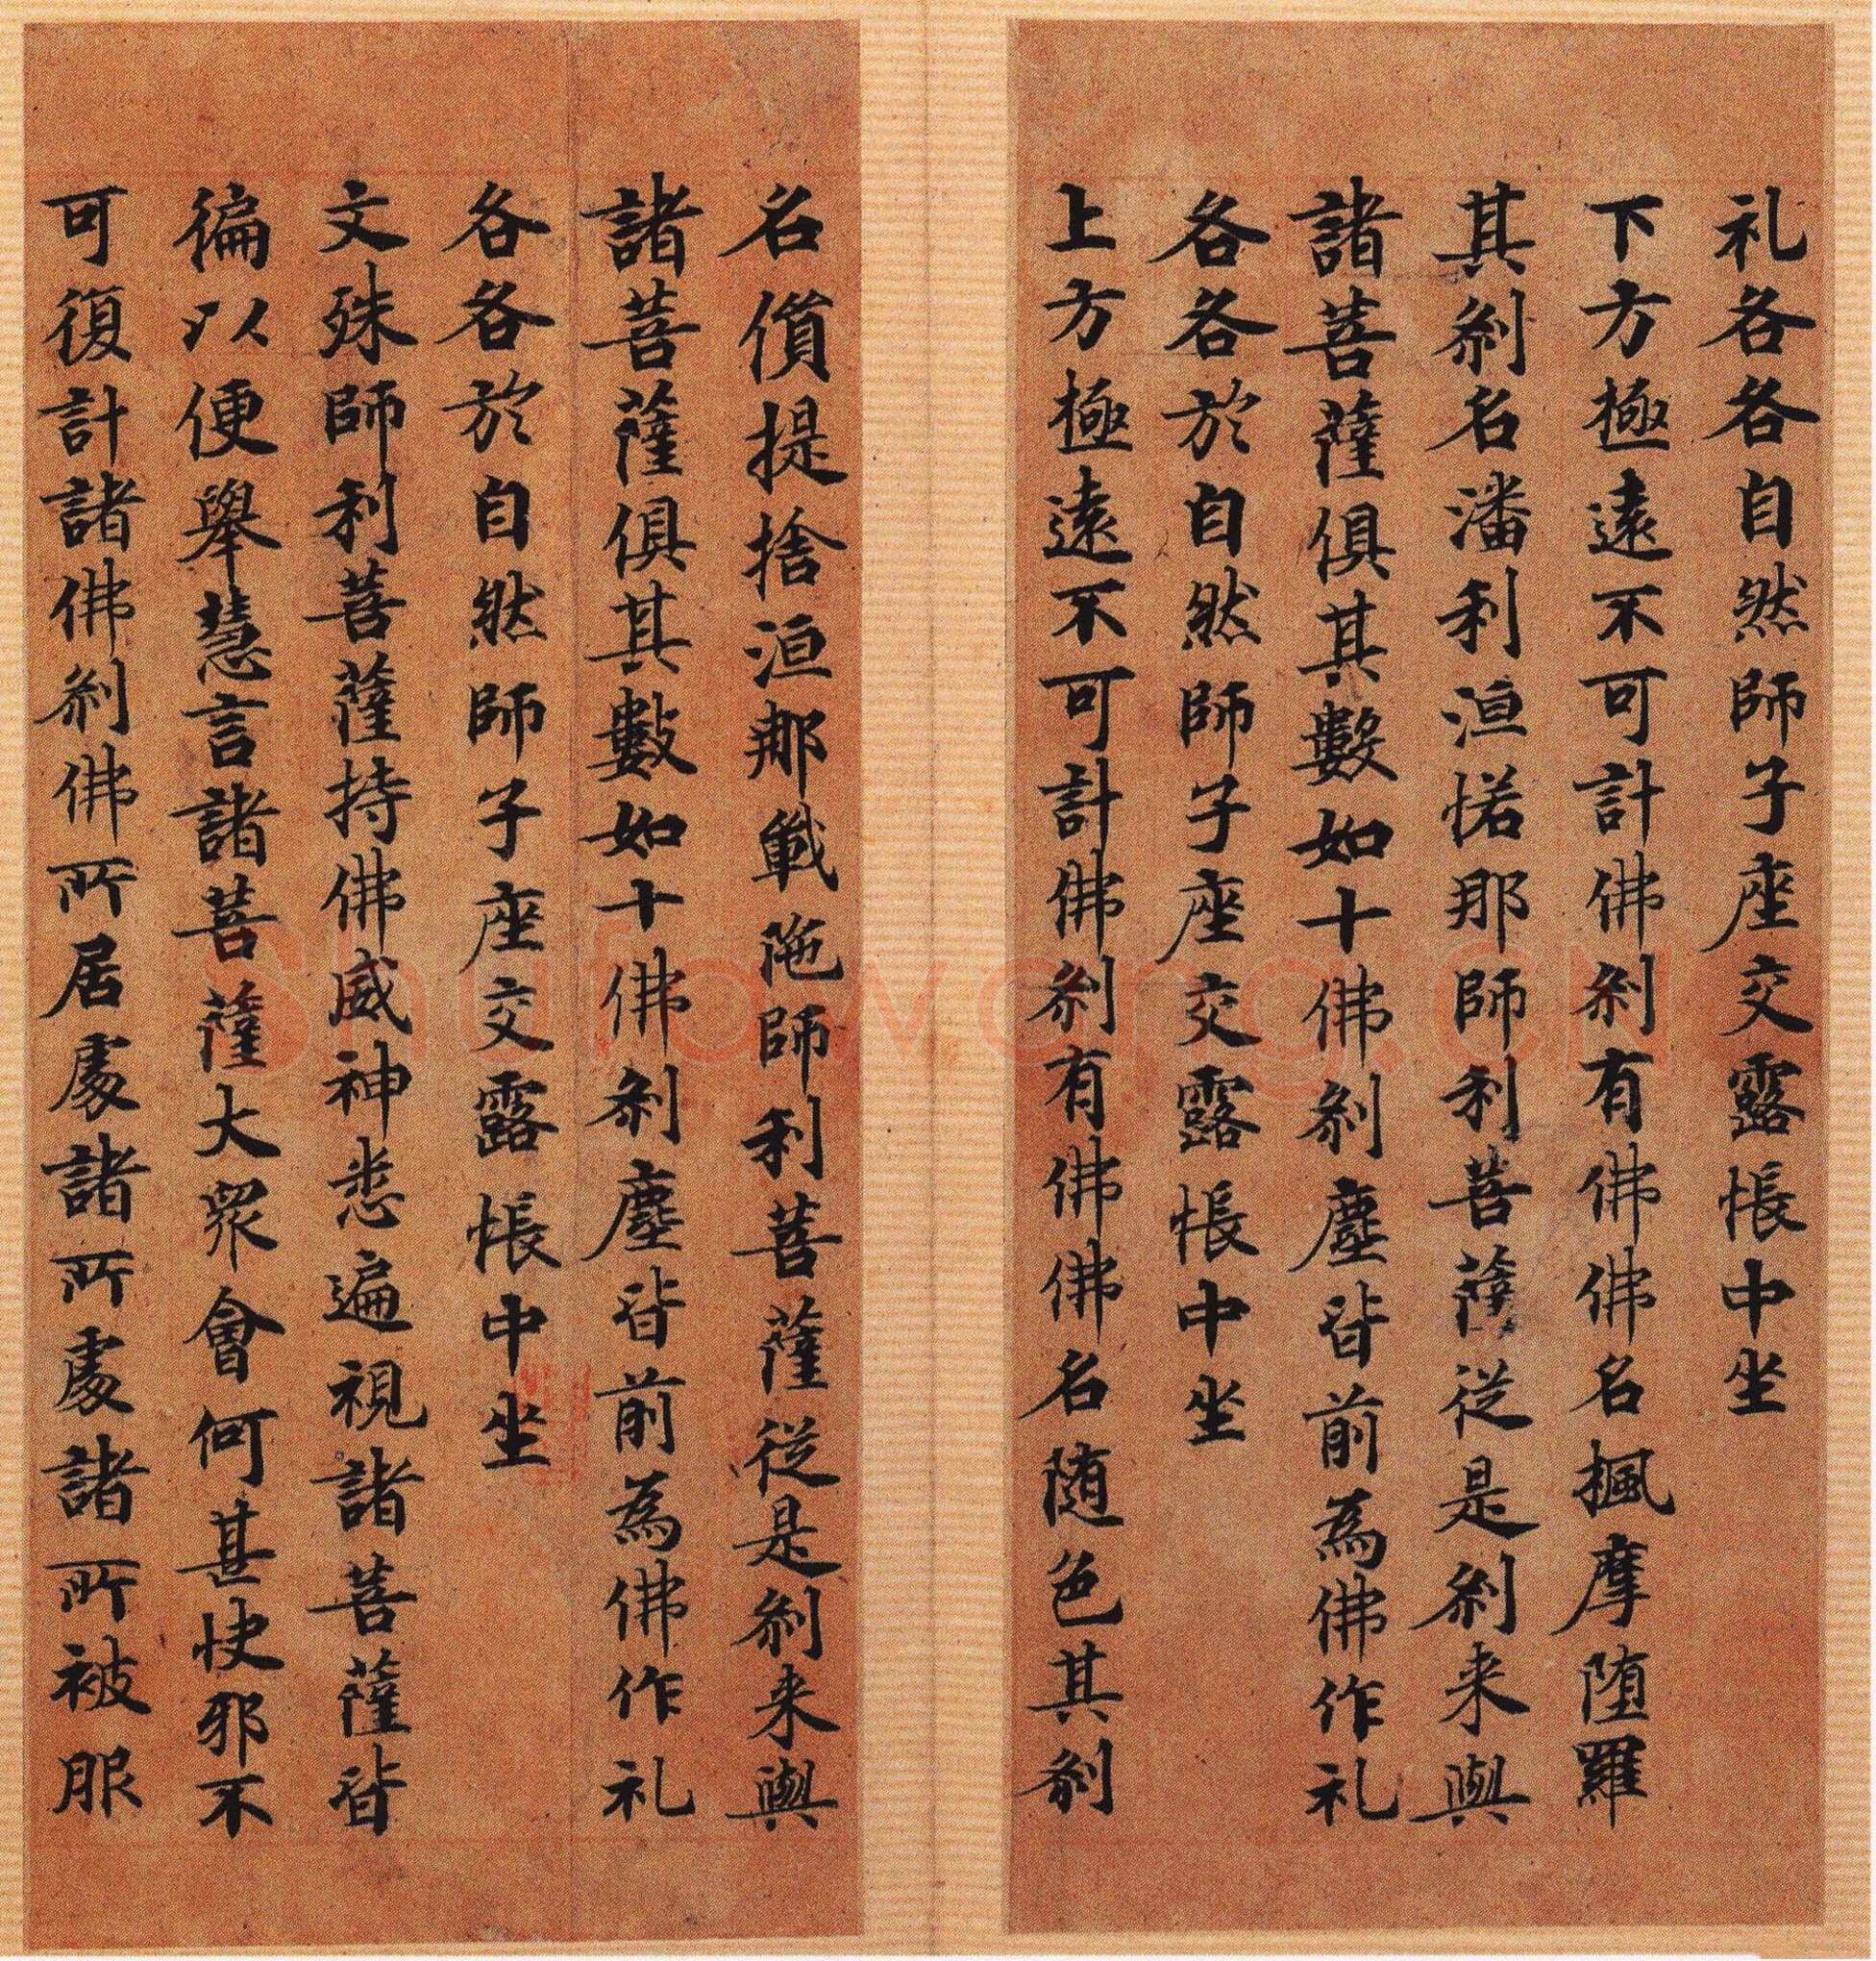 礼各各自然師子座交露帳中坐
下方極遠不可計佛刹有佛佛名楓摩堕羅
其刹名潘利洹惜那師利菩薩從是刹来與
諸菩薩俱其數如十佛刹塵皆前為佛作礼
各各於自然師子座交露帳中坐
上方極遠不可計佛刹有佛佛名随色其刹
名儨提捨洹那戰陁師利菩薩從是刹来與
諸菩薩俱其數如十佛刹塵皆前為佛作礼
各各於自然師子座交露帳中坐
文殊師利菩薩持佛威神悉遍視諸菩薩皆
徧以便舉慧言諸菩薩大衆會何甚快邪不
可復計諸佛刹佛所居處諸所處諸所被服
Shufawang.CN